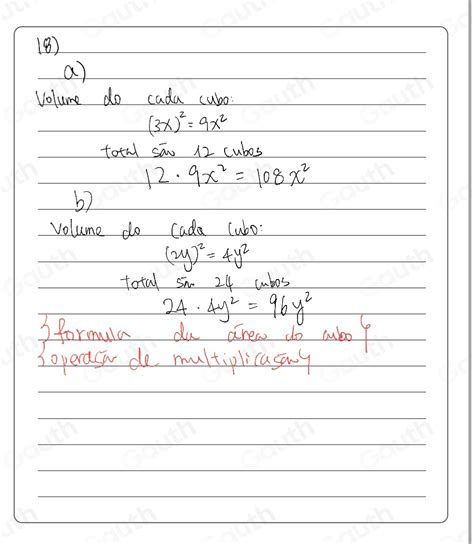 18)
a)
Volume do cada cubo:
(3x)² = 9x²
total são 12 cubos
12 · 9x² = 108x²
b)
Volume do cada cubo:
(2y)² = 4y²
total são 24 cubos
24 · 4y² = 96y²
{formula da área do cubo}
{operação de multiplicação}